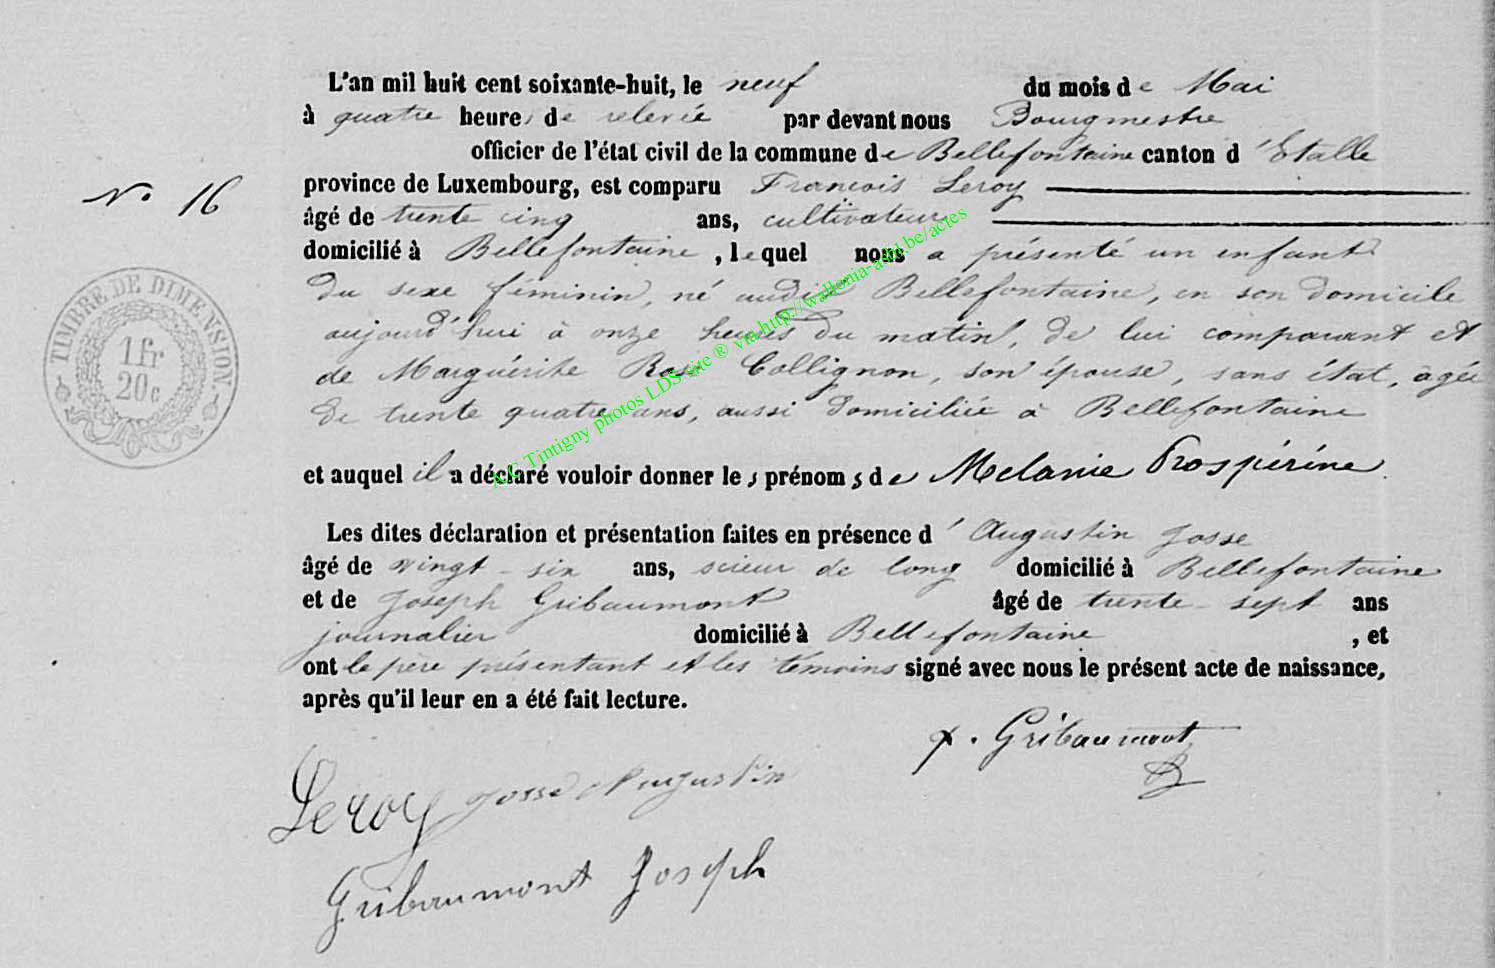 L'an mil huit cent soixante-huit, le neuf du mois de Mai
à quatre heures de relevée par devant nous Bourgmestre
officier de l'état civil de la commune de Bellefontaine canton d'Etalle
N° 16
province de Luxembourg, est comparu François Leroy
âgé de trente cinq ans, cultivateur
domicilié à Bellefontaine, lequel nous a présenté un enfant
du sexe féminin, né audit Bellefontaine, en son domicile
TIMBRE DE DIMENSION
1 fr
20 c
aujourd'hui à onze heures du matin, de lui comparant et
de Marguérite Rose Collignon, son épouse, sans état, agée
de trente quatre ans, aussi domiciliée à Bellefontaine
et auquel il a déclaré vouloir donner les prénoms de Melanie Prospérine
A.C Tintigny photos LDS site ® via http://wallonia-asbl.be/actes
Les dites déclaration et présentation faites en présence d'Augustin Josse
âgé de vingt-six ans, scieur de long domicilié à Bellefontaine
et de Joseph Gribaumont âgé de trente-sept ans
journalier domicilié à Bellefontaine, et
ont le père présentant et les témoins signé avec nous le présent acte de naissance,
après qu'il leur en a été fait lecture.
Gribaumont
Leroy Josse Augustin
Gribaumont Joseph